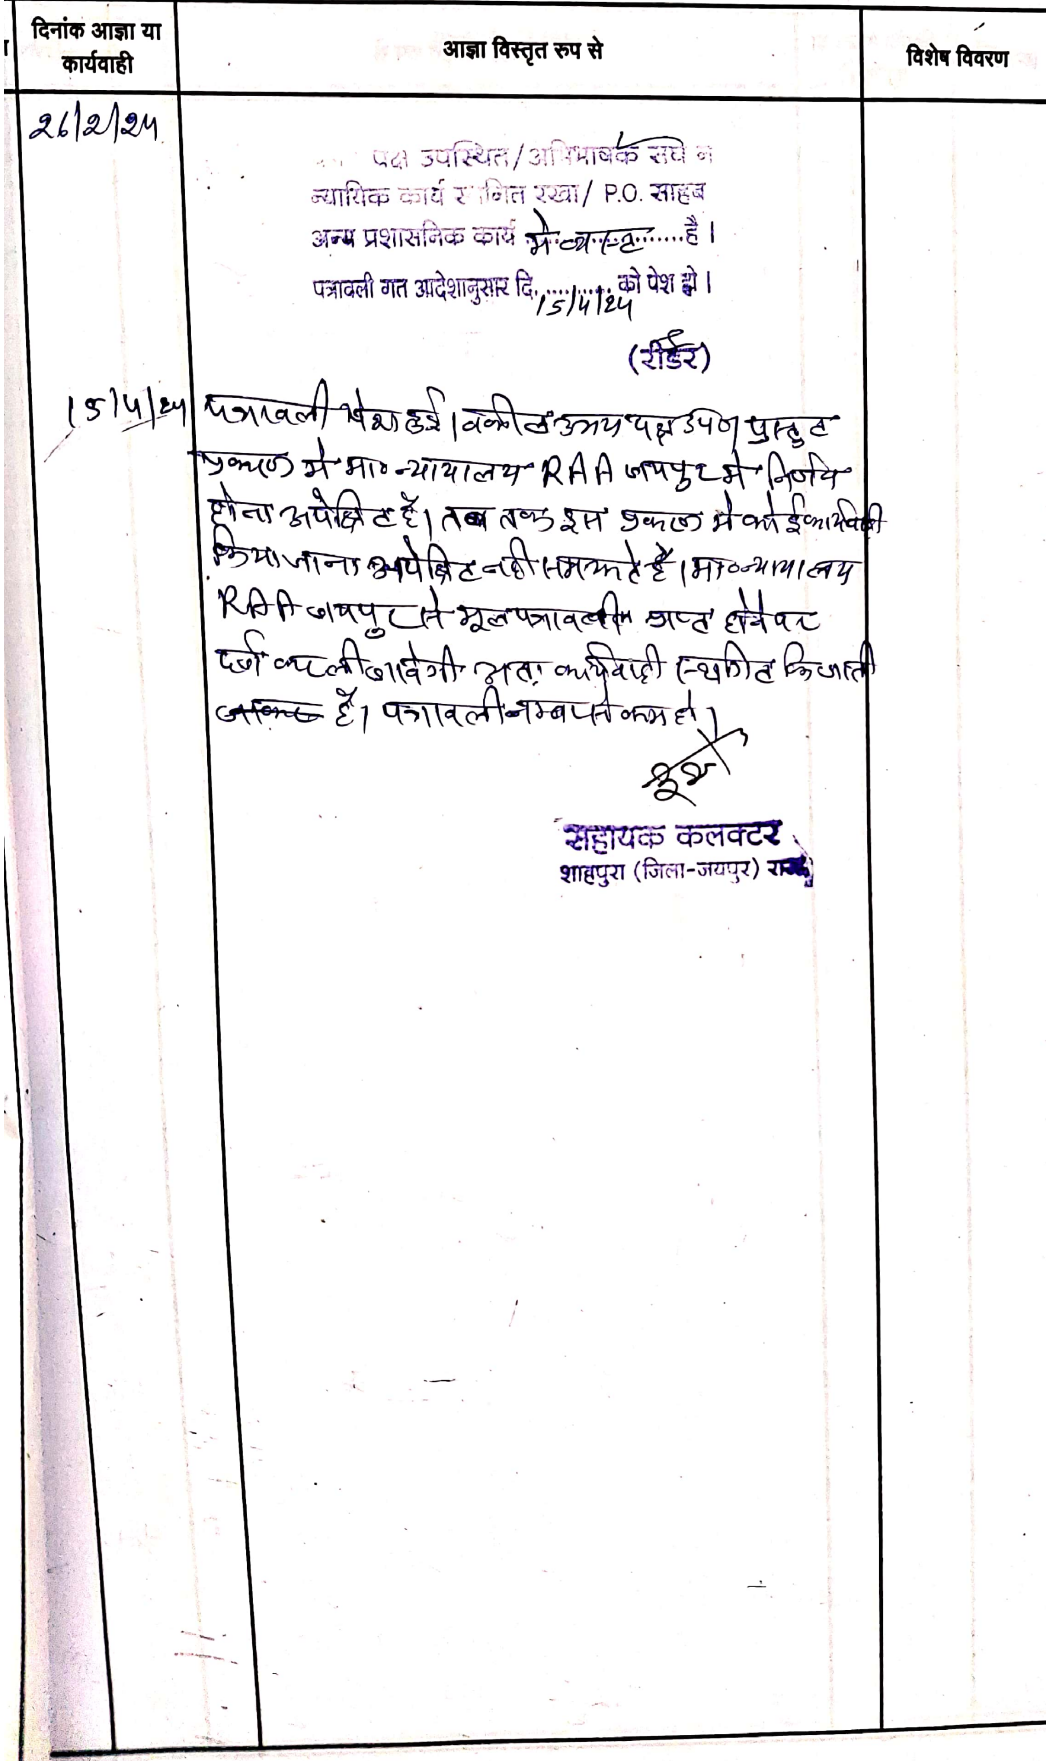 दिनांक आज्ञा या
कार्यवाही
आज्ञा विस्तृत रुप से
विशेष विवरण
26/2/24
पक्ष उपस्थित/अभिभाषक संघ ने
न्यायिक कार्य स्थगित रखा/ P.O. साहब
अन्य प्रशासनिक कार्य में व्यस्त है।
पत्रावली गत आदेशानुसार दि. 15/4/24 को पेश हो।
(रीडर)
15/4/24 पत्रावली पेश हुई। वकील उभय पक्ष उप० प्रस्तुत
प्रकरण मे मा० न्यायालय RAA जयपुर मे निर्णय
होना अपेक्षित है। तब तक इस प्रकरण मे कोई कार्यवाही
किया जाना अपेक्षित नही समझते है। मा० न्यायालय
RAA जयपुर से मूल पत्रावली प्राप्त होने पर
दर्ज कर ली जावेगी अतः कार्यवाही स्थगित कि जाती
है। पत्रावली नम्बर से कम हो।
सहायक कलक्टर
शाहपुरा (जिला-जयपुर) राज०